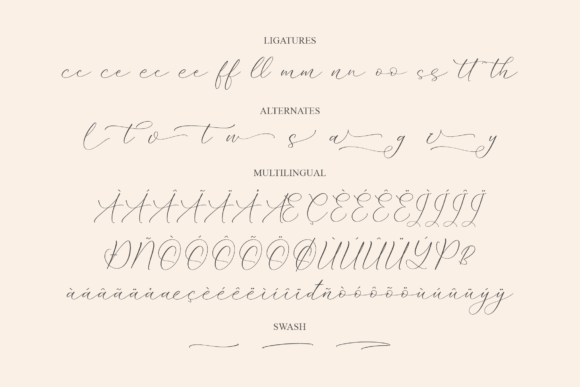 LIGATURES
cc ce ec ee ff ll mm nn oo ss tt th
ALTERNATES
l t o t w s a g v y
MULTILINGUAL
ÀÁÂÃÄÅÆÇÈÉÊËÌÍÎÏ
ÐÑÒÓÔÕÖØÙÚÛÜÝÞß
àáâãäåæçèéêëìíîïđñòóôõöùúûüýÿ
SWASH